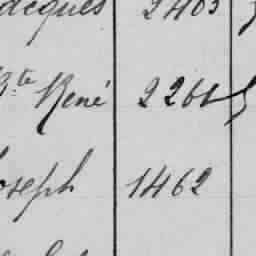 Jacques 2405
Bte René 2266
Joseph 1462